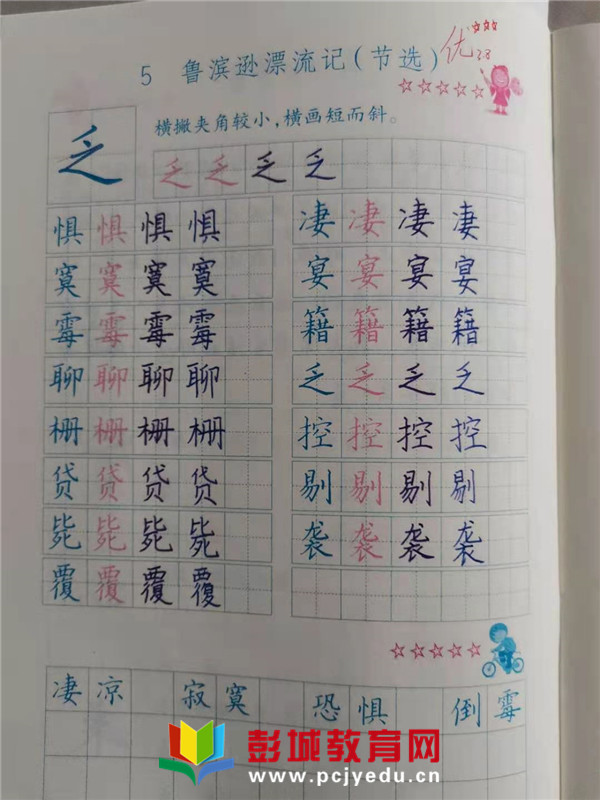 优 28
5 鲁滨逊漂流记(节选)
☆☆☆☆☆
横撇夹角较小,横画短而斜。
乏 乏 乏 乏 乏
惧 惧 惧 惧 凄 凄 凄 凄
寞 寞 寞 寞 宴 宴 宴 宴
霉 霉 霉 霉 籍 籍 籍 籍
聊 聊 聊 聊 乏 乏 乏 乏
栅 栅 栅 栅 控 控 控 控
贷 贷 贷 贷 剔 剔 剔 剔
毙 毙 毙 毙 袭 袭 袭 袭
覆 覆 覆 覆
☆☆☆☆☆
凄凉 寂寞 恐惧 倒霉
彭城教育网
www.pcjyedu.cn